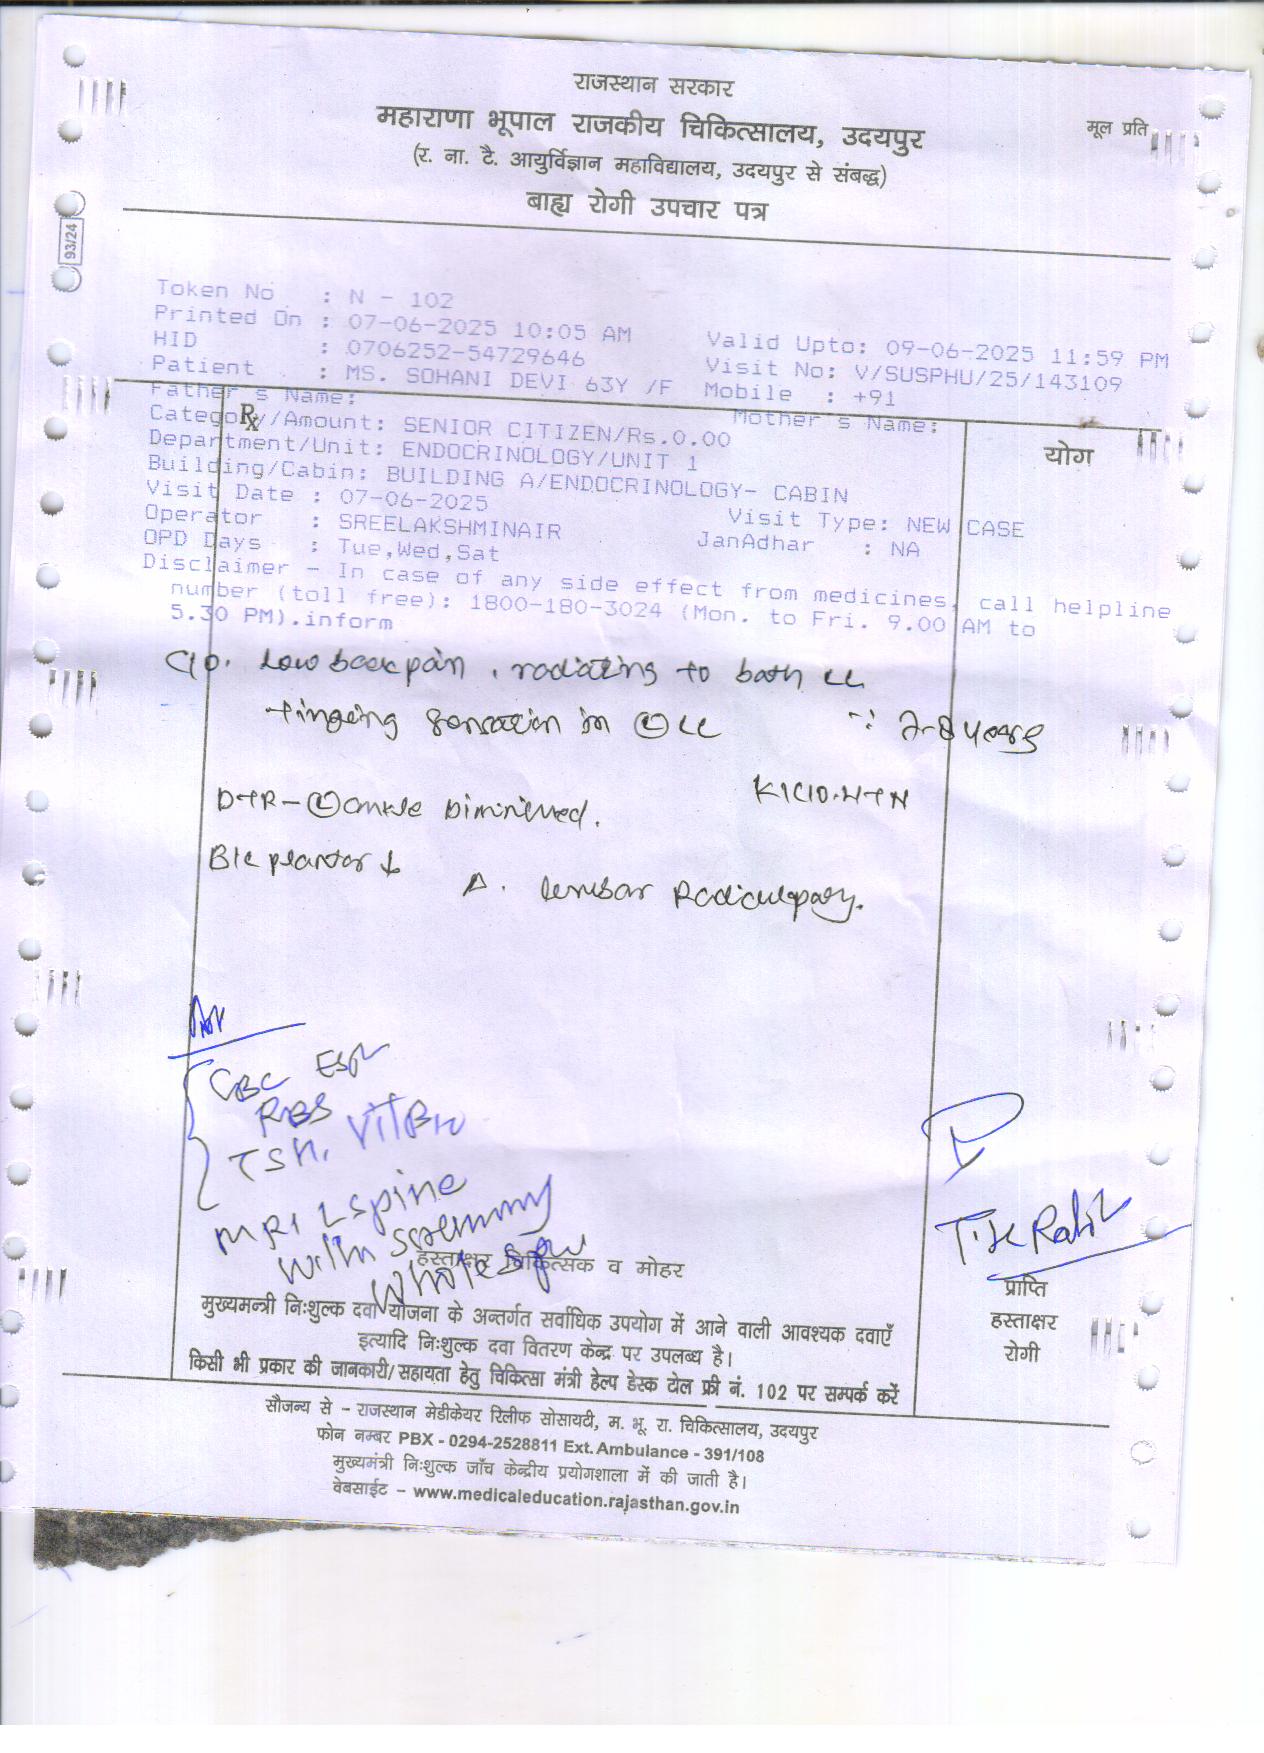 राजस्थान सरकार
महाराणा भूपाल राजकीय चिकित्सालय, उदयपुर
मूल प्रति
(र. ना. टै. आयुर्विज्ञान महाविद्यालय, उदयपुर से संबद्ध)
बाह्य रोगी उपचार पत्र
93/24
Token No : N - 102
Printed On : 07-06-2025 10:05 AM Valid Upto: 09-06-2025 11:59 PM
HID : 0706252-54729646 Visit No: V/SUSPHU/25/143109
Patient : MS. SOHANI DEVI 63Y /F Mobile : +91
Father's Name: Mother's Name:
Rx
Category/Amount: SENIOR CITIZEN/Rs.0.00
योग
Department/Unit: ENDOCRINOLOGY/UNIT 1
Building/Cabin: BUILDING A/ENDOCRINOLOGY- CABIN
Visit Date : 07-06-2025 Visit Type: NEW CASE
Operator : SREELAKSHMINAIR JanAdhar : NA
OPD Days : Tue,Wed,Sat
Disclaimer - In case of any side effect from medicines, call helpline
number (toll free): 1800-180-3024 (Mon. to Fri. 9.00 AM to
5.30 PM).inform
C/o. Low back pain, radiating to both LL
tingling sensation in Ⓛ LL
K/C/O. HTN
DTR - Ⓛ ankle Diminished.
B/L plantar ↓
Δ. lumbar Radiculopathy.
CBC ESR
RBS
TSH, Vit B12
MRI L spine
with screening
whole spine
हस्ताक्षर चिकित्सक व मोहर
प्राप्ति
हस्ताक्षर
रोगी
मुख्यमन्त्री निःशुल्क दवा योजना के अन्तर्गत सर्वाधिक उपयोग में आने वाली आवश्यक दवाएँ
इत्यादि निःशुल्क दवा वितरण केन्द्र पर उपलब्ध है।
किसी भी प्रकार की जानकारी/सहायता हेतु चिकित्सा मंत्री हेल्प डेस्क टोल फ्री नं. 102 पर सम्पर्क करें
सौजन्य से - राजस्थान मेडीकेयर रिलीफ सोसायटी, म. भू. रा. चिकित्सालय, उदयपुर
फोन नम्बर PBX - 0294-2528811 Ext. Ambulance - 391/108
मुख्यमंत्री निःशुल्क जाँच केन्द्रीय प्रयोगशाला में की जाती है।
वेबसाईट - www.medicaleducation.rajasthan.gov.in